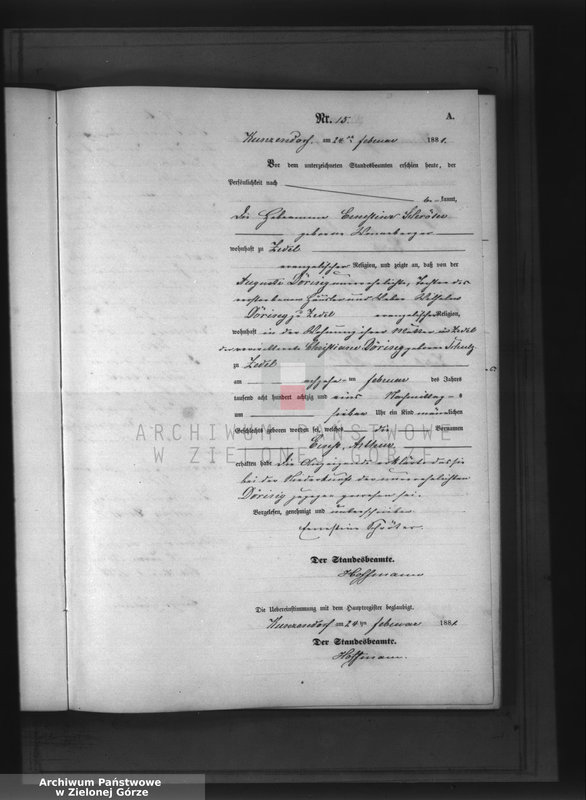 Nr. 15.
A.
Kunzendorf, am 24ten Februar 1881.
Vor dem unterzeichneten Standesbeamten erschien heute, der
Persönlichkeit nach
be=kannt,
die Hebamme Ernestine Schröter
geborne
wohnhaft zu Zedel
evangelischer Religion, und zeigte an, daß von der
Auguste Döring unverehelichte, Tochter des
verstorbenen Häusler und Weber Wilhelm
Döring zu Zedel evangelischer Religion,
wohnhaft in der Wohnung ihrer Mutter in Zedel
der verwittwete Christiane Döring geborne
zu Zedel
am achzehn=ten Februar des Jahres
tausend acht hundert achtzig und eins Nachmittag=s
um sieben Uhr ein Kind männlichen
Geschlechts geboren worden sei, welches die Vornamen
Ernst,
erhalten habe. Die Anzeigende erklärte das sie
bei der Niederkunft der unverehelichten
Döring zugegen gewesen sei.
Vorgelesen, genehmigt und unterschrieben
Ernestine Schröter.
Der Standesbeamte.
Hoffmann
Die Uebereinstimmung mit dem Hauptregister beglaubigt.
Kunzendorf am 24ten Februar 1881.
Der Standesbeamte.
Hoffmann.
ARCHIWUM PAŃSTWOWE
W ZIELONEJ GÓRZE
Archiwum Państwowe
w Zielonej Górze